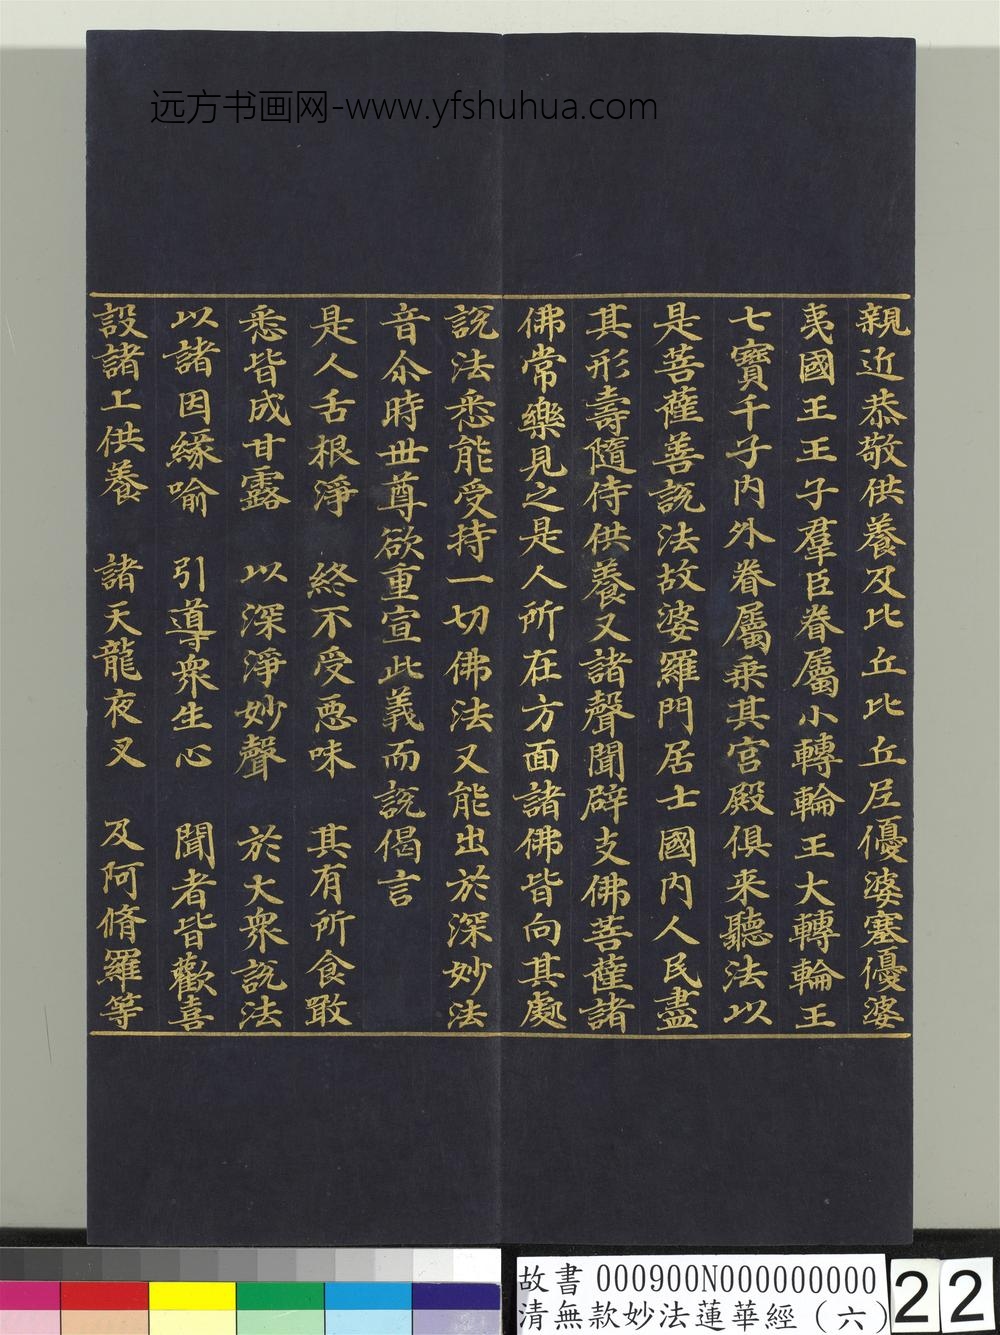 远方书画网-www.yfshuhua.com
親近恭敬供養及比丘比丘尼優婆塞優婆
夷國王王子羣臣眷屬小轉輪王大轉輪王
七寶千子内外眷屬乗其宮殿俱来聽法以
是菩薩善說法故婆羅門居士國内人民盡
其形壽隨侍供養又諸聲聞辟支佛菩薩諸
佛常樂見之是人所在方面諸佛皆向其處
說法悉能受持一切佛法又能出於深妙法
音尒時世尊欲重宣此義而說偈言
是人舌根淨 終不受惡味 其有所食噉
悉皆成甘露 以深淨妙聲 於大衆說法
以諸因緣喻 引導衆生心 聞者皆歡喜
設諸上供養 諸天龍夜叉 及阿脩羅等
故書 000900N000000000
清無款妙法蓮華經（六）
22